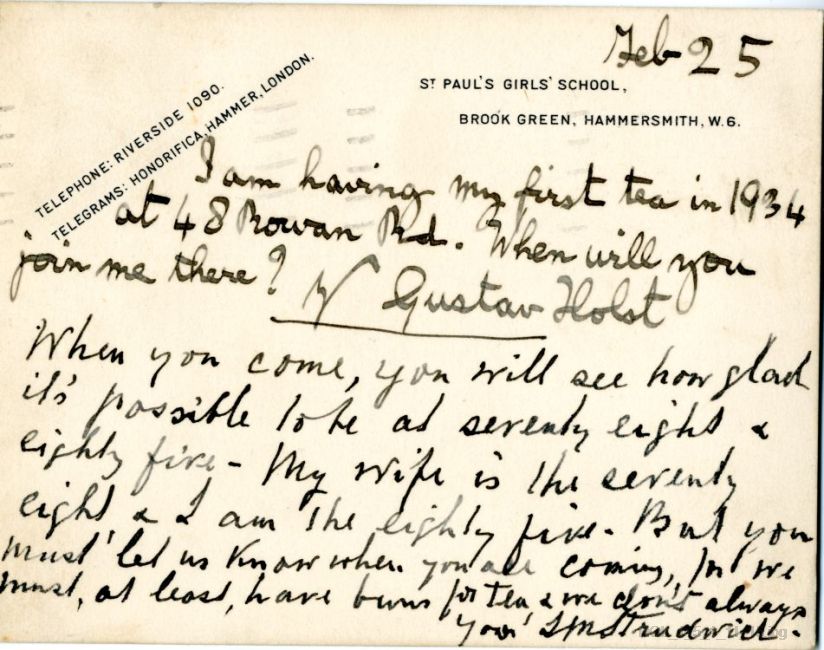 Feb 25
ST PAUL'S GIRLS' SCHOOL,
BROOK GREEN, HAMMERSMITH, W.6.
TELEPHONE: RIVERSIDE 1090.
TELEGRAMS: HONORIFICA, HAMMER, LONDON.
I am having my first tea in 1934
at 48 Rowan Rd. When will you
join me there?
Gustav Holst
When you come, you will see how glad
it's possible to be at seventy eight &
eighty five - My wife is the seventy
eight & I am the eighty five - But you
must let us know when you are coming, for we
must, at least, have buns for tea & we don't always
Strudwick.